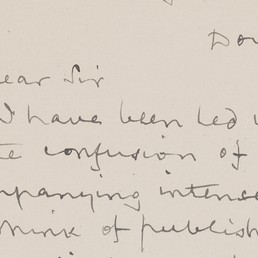 Dow
ear Sir
I have been led
te confusion of
mpanying intense
think of publish